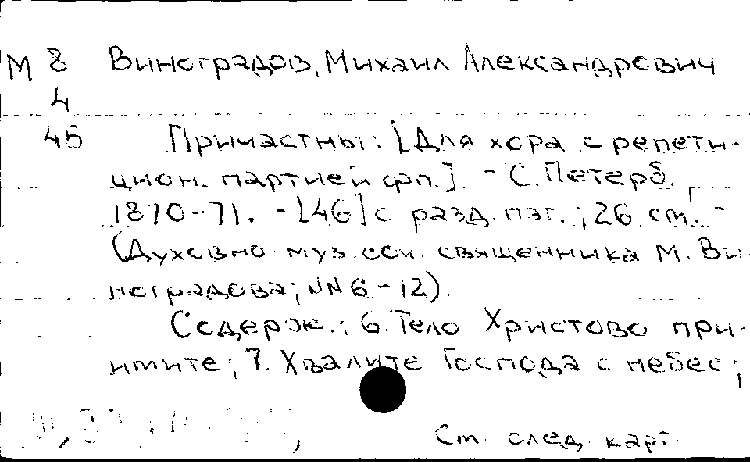 М 8 Виноградов, Михаил Александрович
4
45 Причастны: [Для хора с репети-
цион. партией фп.]. - С. Петерб.,
1870-71. - [46] с разд. паг.; 26 см. -
(Духовно-муз. соч. священника М. Ви-
ноградова; NN 6-12).
Содерж.: 6. Тело Христово при-
имите; 7. Хвалите Господа с небес;
См. след. карт.